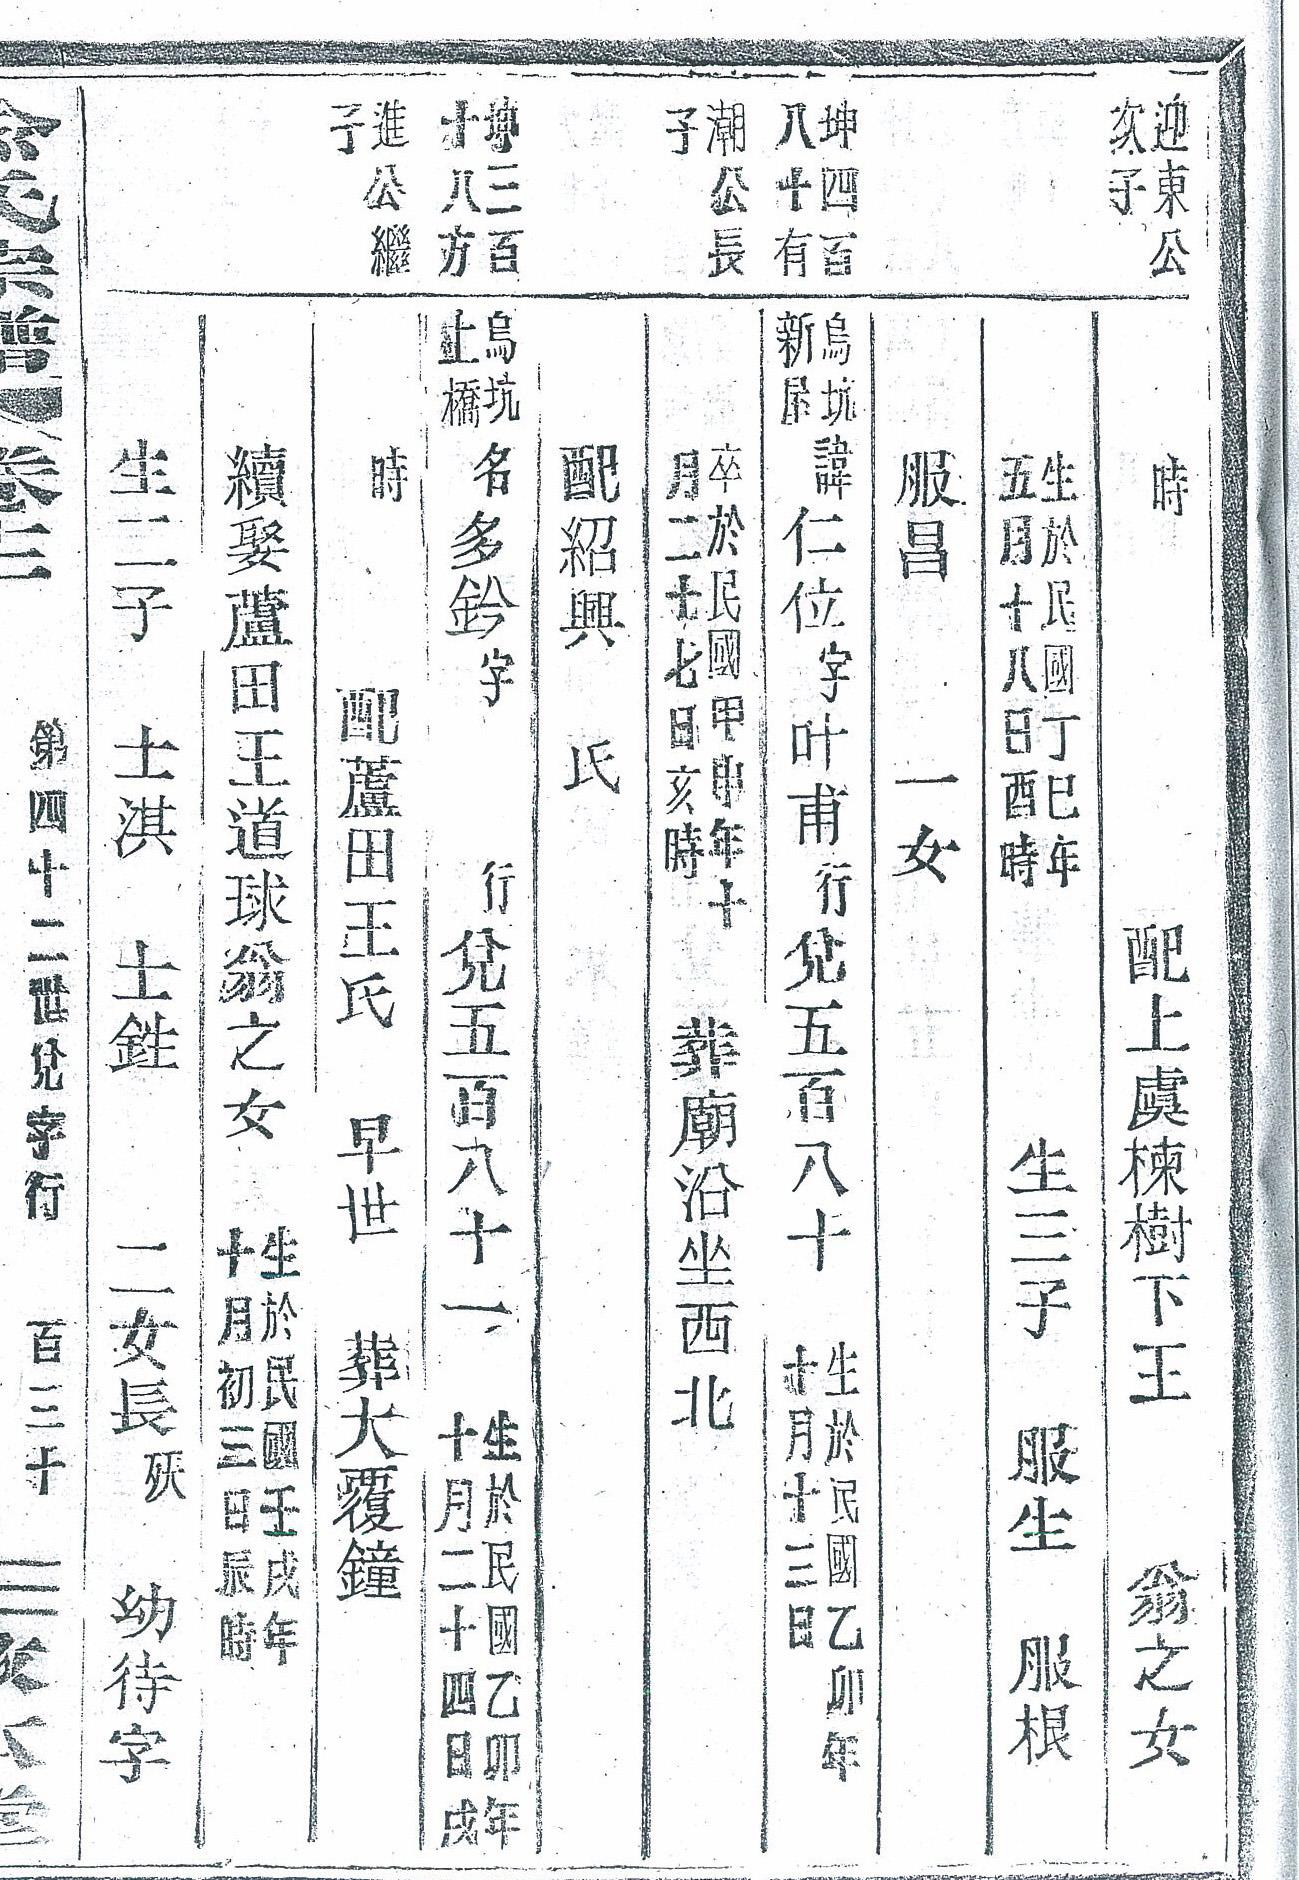 迎東公
次子
時 配上虞楝樹下王 翁之女
生於民國丁巳年
五月十八日酉時
生三子 服生 服根
服昌 一女
坤四百
八十有
烏坑
新屋
諱仁位字叶甫行兌五百八十
生於民國乙卯年
十月十三日
潮公長
子
卒於民國甲申年十
月二十七日亥時
葬廟沿坐西北
配紹興 氏
坤三百
十八方
烏坑
上橋
名多鈴字 行兌五百八十一
生於民國乙卯年
十月二十四日戌
進公繼
子
時 配蘆田王氏 早世 葬大覆鐘
續娶蘆田王道球翁之女
生於民國壬戌年
十月初三日辰時
生二子 士淇 士鉎 二女長 幼待字
宗譜 卷三
第四十二世兌字行 百三十